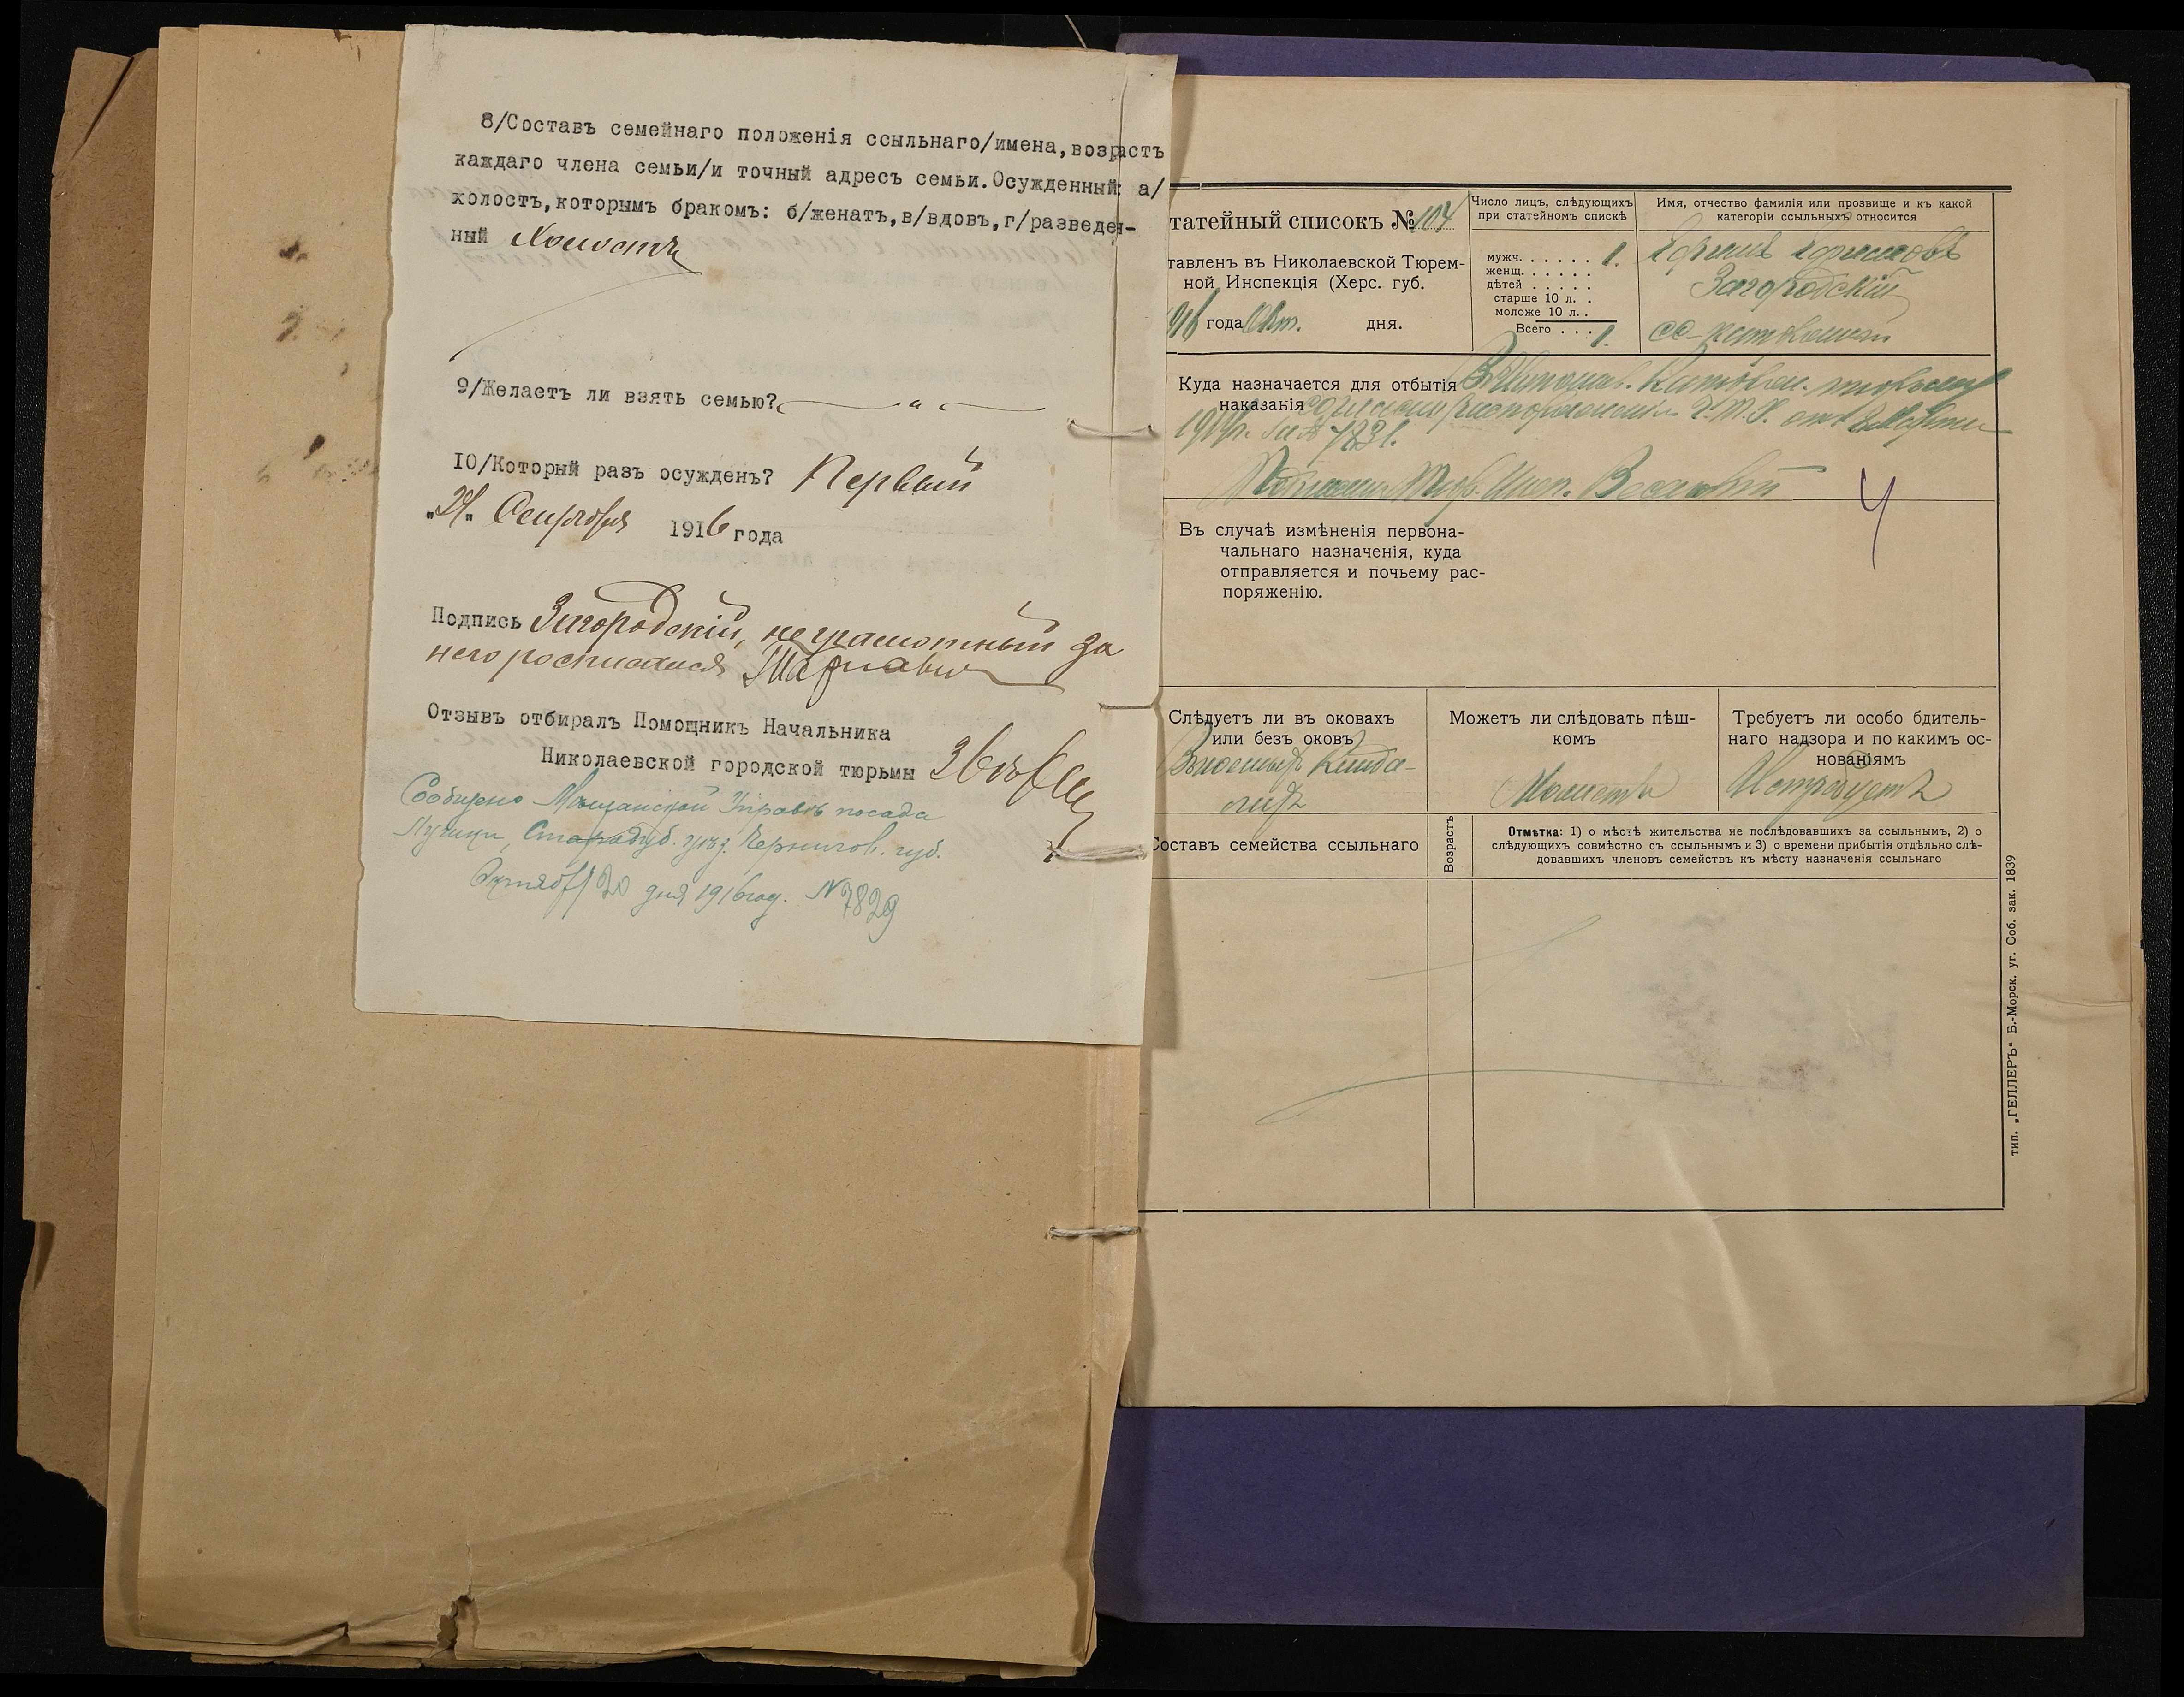 8/Составъ семейнаго положенія ссыльнаго/имена,возрастъ
каждаго члена семьи/и точный адресъ семьи.Осужденный: а/
холостъ,которымъ бракомъ: б/женатъ,в/вдовъ,г/разведен-
ный Холостъ
9/Желаетъ ли взять семью? — " —
10/Который разъ осужденъ? Первый
"21" Сентября 1916 года
Подпись Загородскій, неграмотный за
него росписался
Отзывъ отбиралъ Помощникъ Начальника
Николаевской городской тюрьмы
Сообщено Мѣщанской Управѣ посада
Лужки, Стародуб. уѣз. Чернигов. губ.
Октября 20 дня 1916 год. № 7829
татейный списокъ № 104
тавленъ въ Николаевской Тюрем-
ной Инспекція (Херс. губ.
916 года Окт. дня.
Число лицъ, слѣдующихъ
при статейномъ спискѣ
мужч. . . . . . . 1.
женщ. . . . . . .
дѣтей . . . . .
старше 10 л. . .
моложе 10 л. . .
Всего . . . 1.
Имя, отчество фамилія или прозвище и къ какой
категоріи ссыльныхъ относится
Ефимъ Ефимовъ
Загородскій
сс-каторжный
Куда назначается для отбытія
наказанія
1914г. за № 7831.
Помощн. Тюр. Инсп.
4
Въ случаѣ измѣненія первона-
чальнаго назначенія, куда
отправляется и почьему рас-
поряженію.
Слѣдуетъ ли въ оковахъ
или безъ оковъ
Въ ножныхъ канда-
лахъ
Можетъ ли слѣдовать пѣш-
комъ
Можетъ
Требуетъ ли особо бдитель-
наго надзора и по какимъ ос-
нованіямъ
Не требуетъ
Составъ семейства ссыльнаго
Возрастъ
Отмѣтка: 1) о мѣстѣ жительства не послѣдовавшихъ за ссыльнымъ, 2) о
слѣдующихъ совмѣстно съ ссыльнымъ и 3) о времени прибытія отдѣльно слѣ-
довавшихъ членовъ семействъ къ мѣсту назначенія ссыльнаго
тип. „ГЕЛЛЕРЪ“ Б.-Морск. уг. Соб. зак. 1839